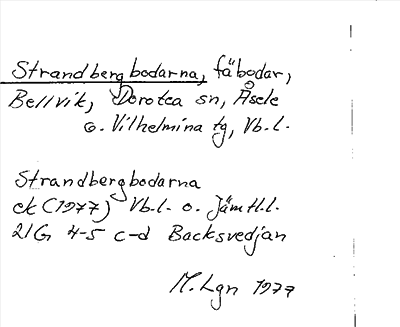 Strandbergbodarna, fäbodar,
Bellvik, Dorotea sn, Åsele
o. Vilhelmina tg, Vb.l.
Strandbergbodarna
ek (1977) Vb.l. o. Jämtl.l.
21G 4-5 c-d Backsvedjan
M. Lgn 1977